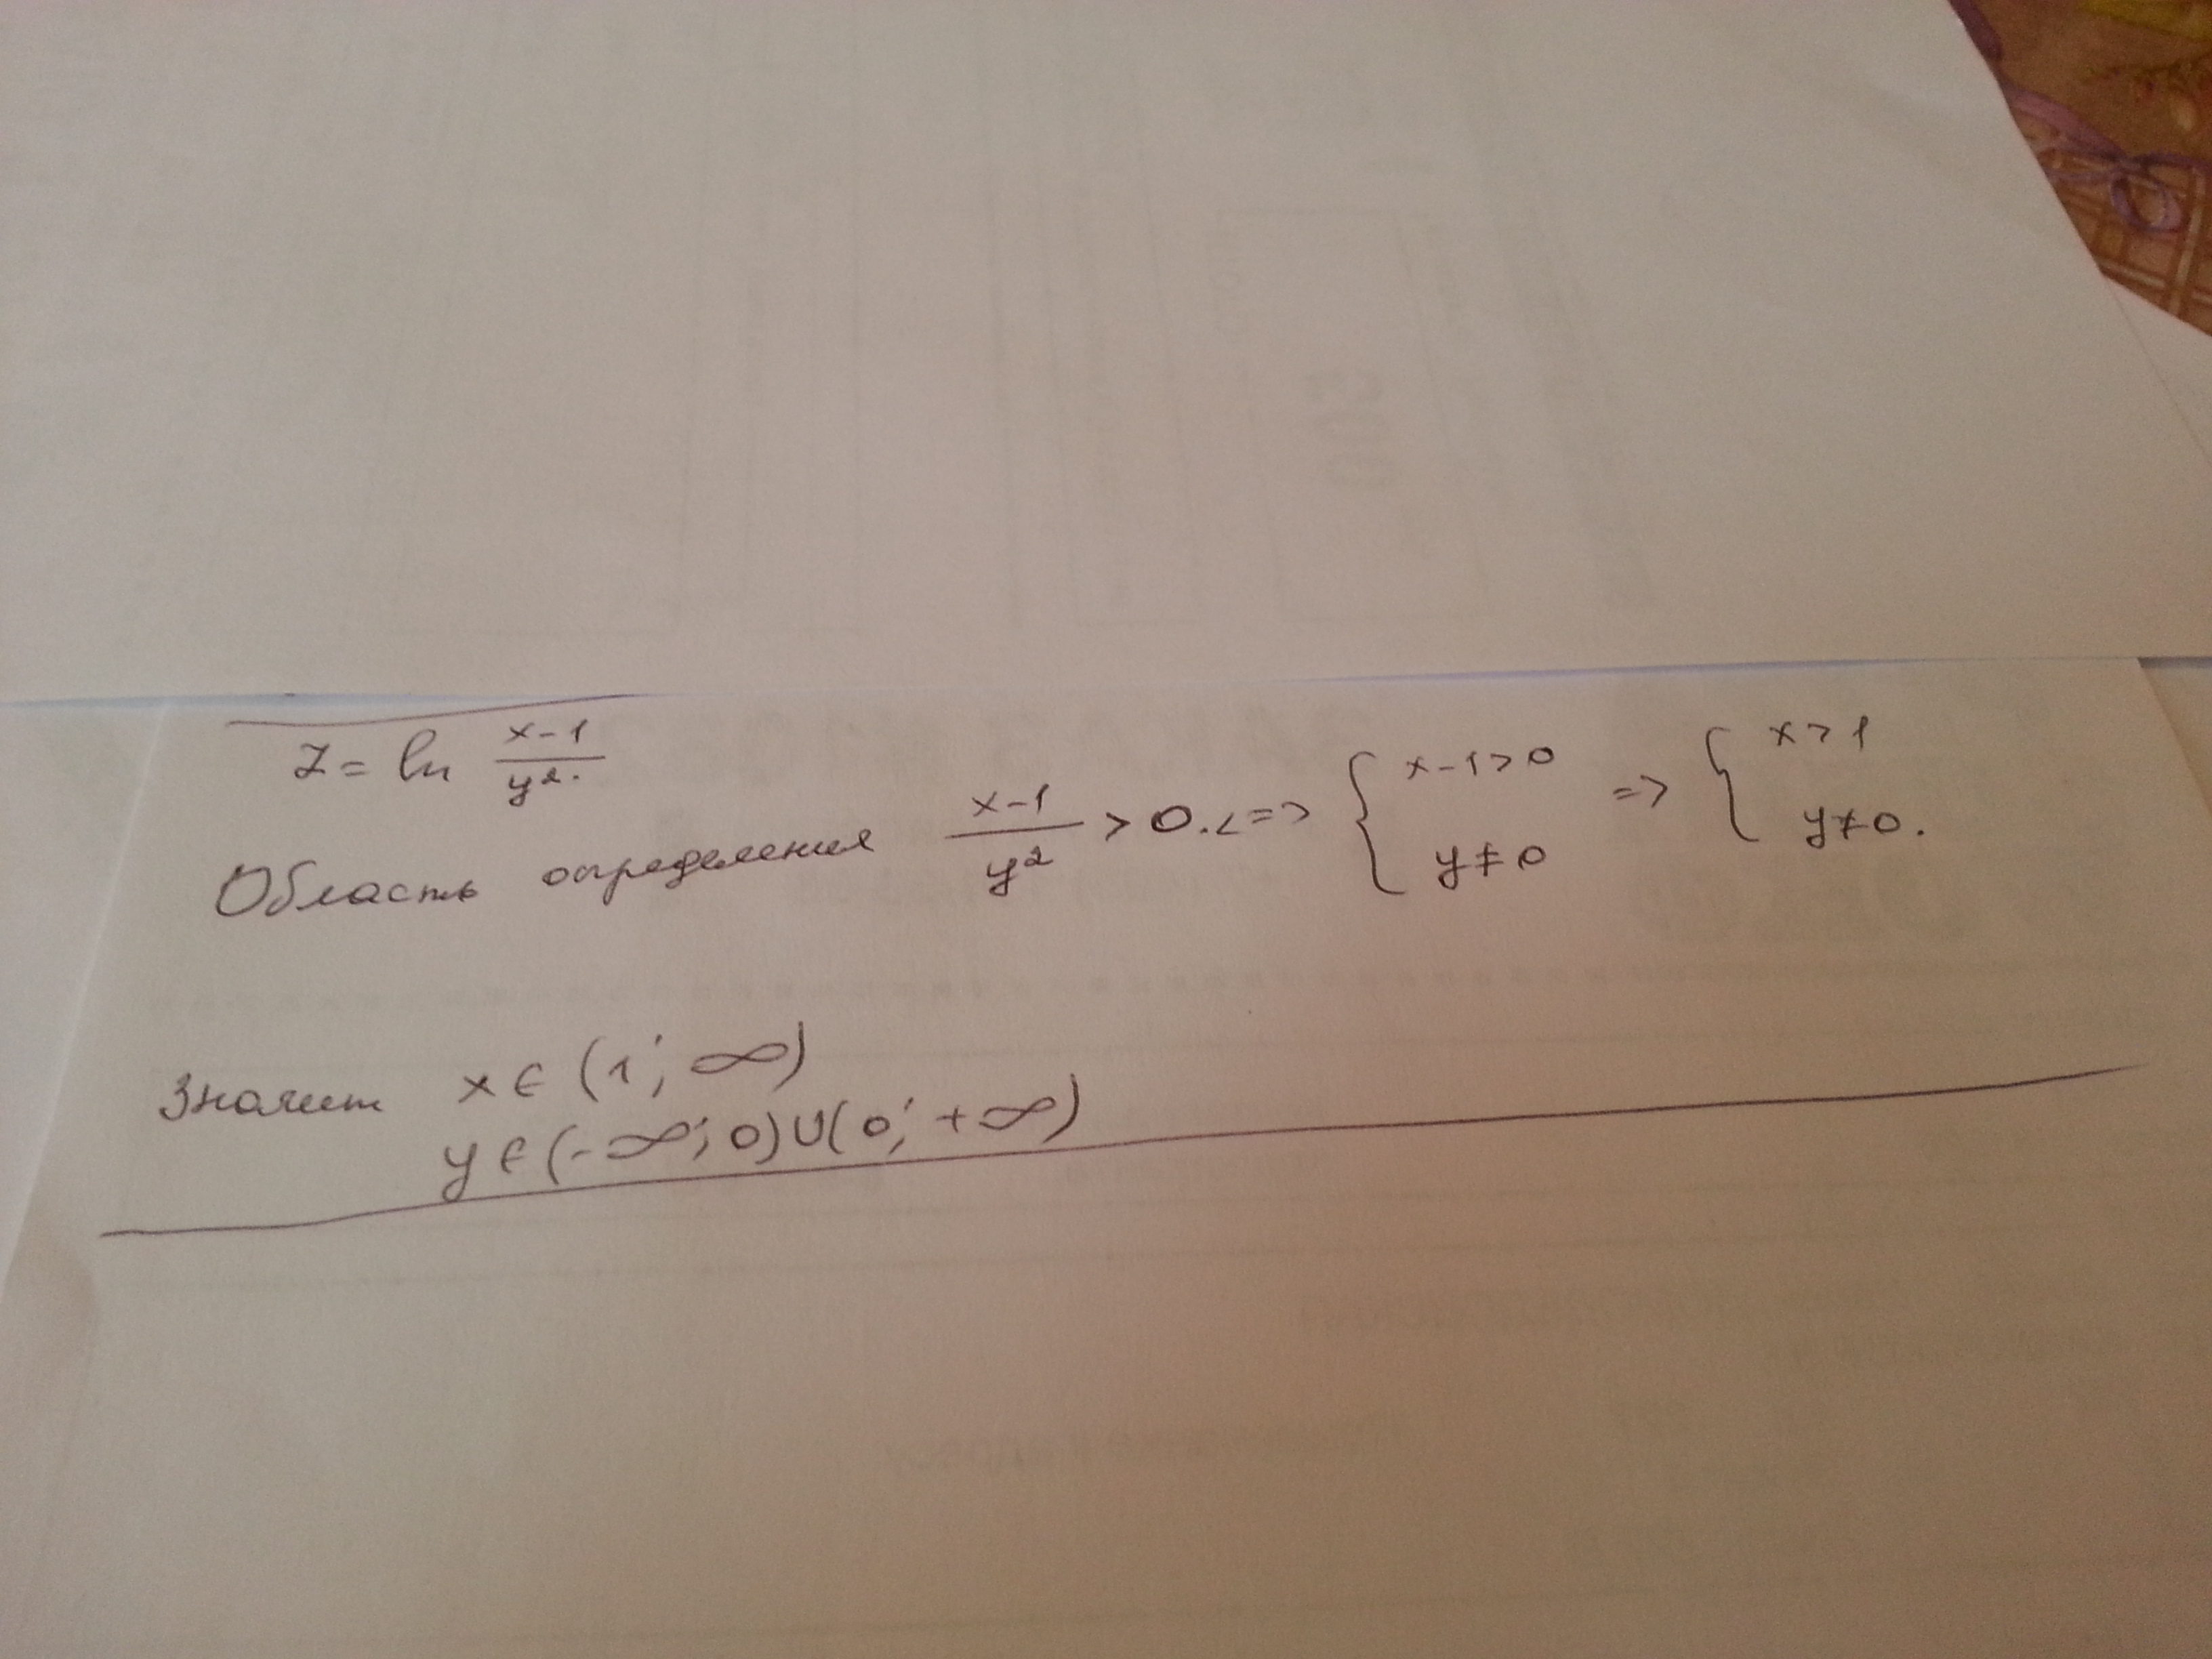 Z = ln (x-1)/y².
Область определения (x-1)/y² > 0. <=> { x-1>0 y≠0 => { x>1 y≠0.
Значит x ∈ (1; ∞)
y ∈ (-∞; 0) ∪ (0; +∞)